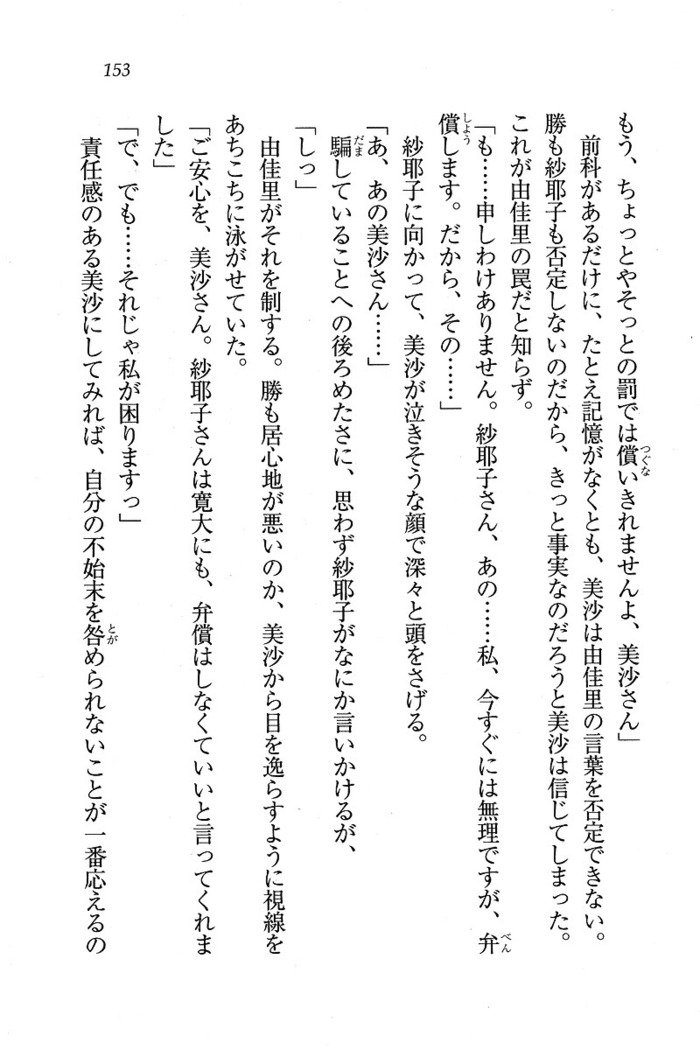 153
もう、ちょっとやそっとの罰では償いきれませんよ、美沙さん」
前科があるだけに、たとえ記憶がなくとも、美沙は由佳里の言葉を否定できない。
勝も紗耶子も否定しないのだから、きっと事実なのだろうと美沙は信じてしまった。
これが由佳里の罠だと知らず。
「も……申しわけありません。紗耶子さん、あの……私、今すぐには無理ですが、弁
償します。だから、その……」
紗耶子に向かって、美沙が泣きそうな顔で深々と頭をさげる。
「あ、あの美沙さん……」
騙していることへの後ろめたさに、思わず紗耶子がなにか言いかけるが、
「しっ」
由佳里がそれを制する。勝も居心地が悪いのか、美沙から目を逸らすように視線を
あちこちに泳がせていた。
「ご安心を、美沙さん。紗耶子さんは寛大にも、弁償はしなくていいと言ってくれま
した」
「で、でも……それじゃ私が困りますっ」
責任感のある美沙にしてみれば、自分の不始末を咎められないことが一番応えるの